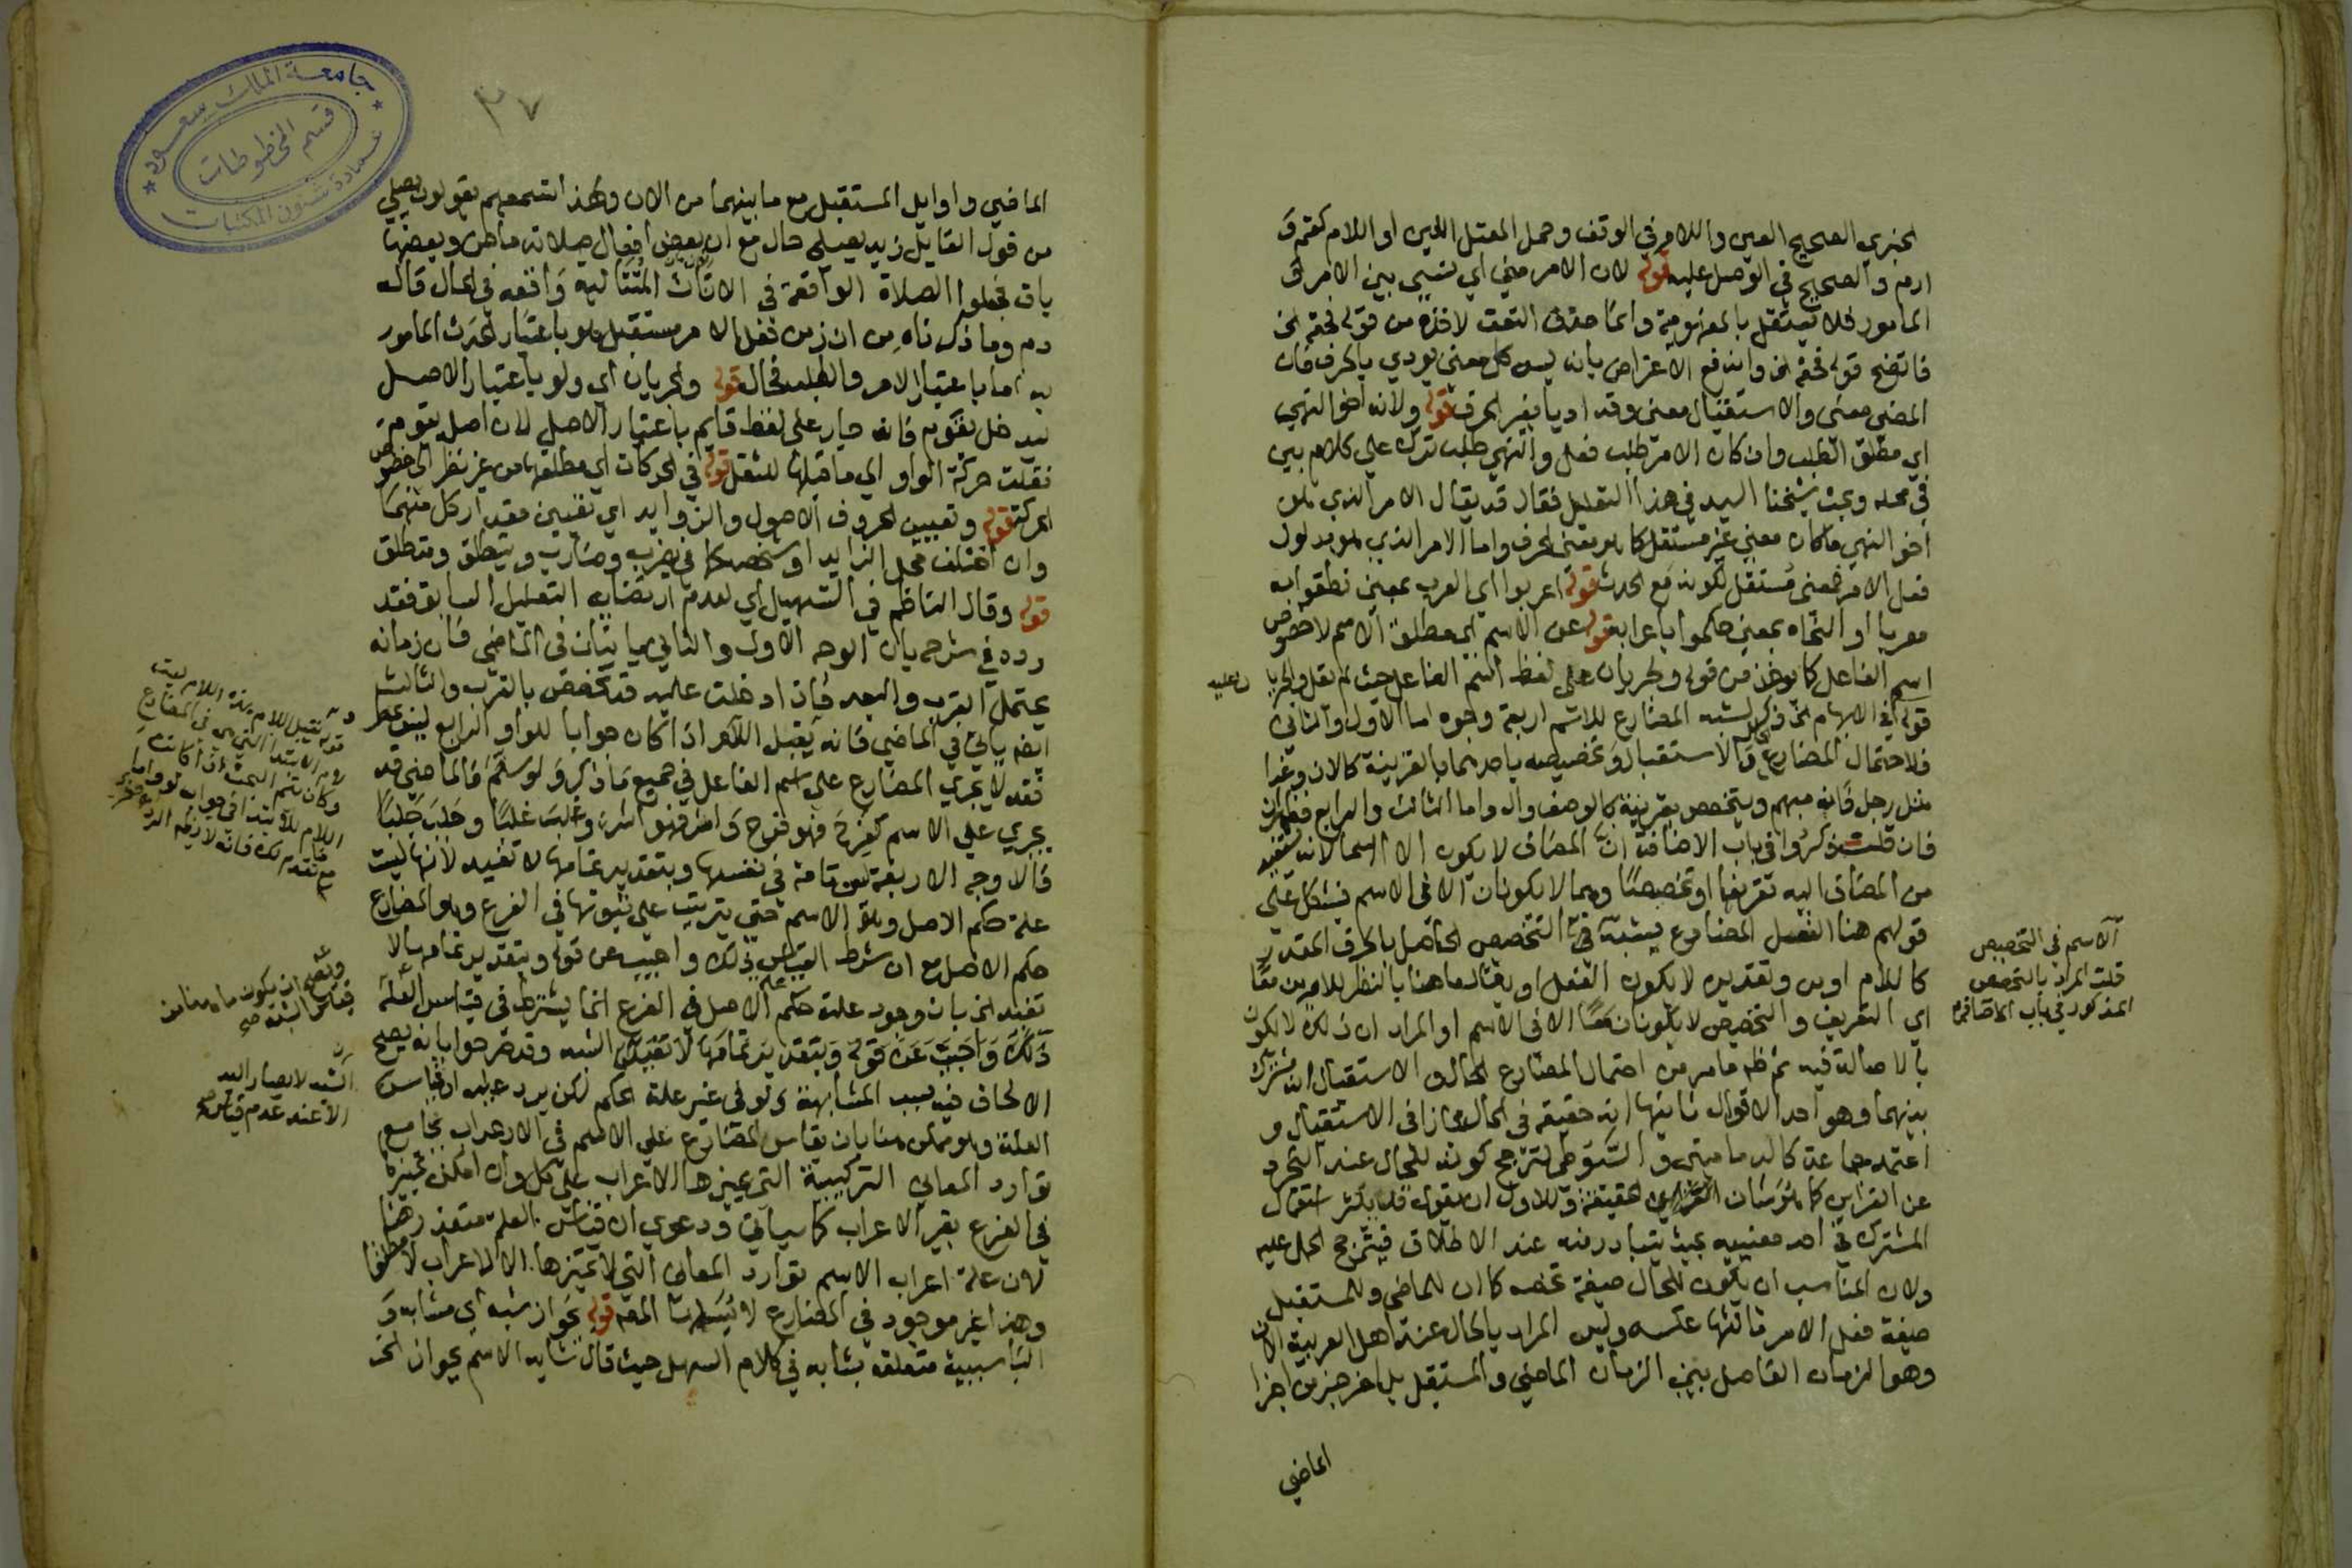 لجزي الصحيح العين واللام في الوقف وحمل المعتل العين او اللام كقم و
ارم والصحيح في الوصل عليه قوله لان الامر معنى اي نسبي بين الامر و
المامور فلا يستقل بالمفهومية وانما حذف النعت لاخذه من قوله فحقه الخ
فاتضح قوله فحقه الخ واندفع الاعتراض بانه ليس كل معنى يودي بالحرف فان
المضي معنى والاستقبال معنى وقد اديا بغير الحرف قوله ولانه اخو النهي
اي مطلق الطلب وان كان الامر طلب فعل والنهي طلب ترك على كلام بين
في محله وبحث شيخنا السيد في هذا التعليل فقال قد يقال الامر الذي هو
اخو النهي ما كان معنى غير مستقل كما هو معنى الحرف واما الامر الذي هو مدلول
فعل الامر فمعنى مستقل لكونه مع الحدث قوله اعربوا اي العرب بمعنى نطقوا به
معربا او النحاه بمعنى حكموا باعرابه قوله عن الاسم اي مطلق الاسم لا خصوص
اسم الفاعل كما يوخذ من قوله وجريان على لفظ اسم الفاعل حيث لم يقل والجريان عليه
قوله في الابهام الخ ذكر لشبه المضارع للاسم اربعة وجوه اما الاول والثاني
فلاحتمال المضارع الحال والاستقبال وتخصيصه باحدهما بالقرينة كالان وغدا
مثل رجل فانه مبهم ويتخصص بقرينة كالوصف وال واما الثالث والرابع فظاهران
فان قلت ذكروا في باب الاضافة ان المضاف لا يكون الا اسما لانه يستفيد
من المضاف اليه تعريفا او تخصيصا وهما لا يكونان الا في الاسم فيشكل على
قولهم هنا الفعل المضارع يشبه في التخصص الحاصل بالحرف المقدر
كاللام او من وتقديره لا يكون الفعل او يقال ما هنا بالنظر للامرين معا
اي التعريف والتخصيص لا يكونان معا الا في الاسم او المراد ان ذلك لا يكون
بالاصالة فيه ثم ظاهر ما مر من احتمال المضارع الحال والاستقبال انه مشترك
بينهما وهو احد الاقوال ثانيها انه حقيقة في الحال مجازا في الاستقبال و
اعتمده جماعة كالدماميني والسيوطي لترجح كونه للحال عند التجرد
عن القراين كما هو شان الحقيقة وللاول ان يقول قد يكثر استعمال
المشترك في احد معنييه بحيث يتبادر منه عند الاطلاق فيترجح الحمل عليه
ولان المناسب ان يكون للحال صيغة تخصه كما ان للماضي وللمستقبل
صيغة فعل الامر ثالثها عكسه وليس المراد بالحال عند اهل العربية الان
وهو الزمان الفاصل بين الزمان الماضي والمستقبل بل اخر جزء من اجزا
الماضي
الاسم في التخصيص
قلت المراد بالتخصص
المذكور في باب الاضافة
٣٧
جامعة الملك سعود
قسم المخطوطات
عمادة شئون المكتبات
الماضي واوايل المستقبل مع ما بينهما من الان ولهذا اتسمعهم يقولون يصلي
من قول القايل زيد يصلي حال مع ان بعض افعال صلاته ماض وبعضها
باق فجعلوا الصلاة الواقعة في الانات المتتالية واقعه في الحال قاله
دم وما ذكرناه من ان زمن فعل الامر مستقبل هو باعتبار الحدث المامور
به اما باعتبار الامر والطلب فحال قوله والجريان اي ولو باعتبار الاصل
ليدخل يقوم فانه جار على لفظ قايم باعتبار الاصل لان اصل يقوم
فنقلت حركة الواو الى ما قبلها للثقل قوله في الحركات اي مطلقها من غير نظر الى خصوص
الحركة قوله وتعيين الحروف الاصول والزوايد اي تعيين مقدار كل منهما
وان اختلف محل الزايد او شخصه كما في يضرب وضارب وينطلق ومنطلق
قوله وقال الناظم في التسهيل اي لعدم ارتضايه التعليل السابق فقد
رده في شرحه بان الوجه الاول والثاني ياتيان في الماضي فان زمانه
يحتمل القرب والبعد فاذا دخلت عليه قد تخصص بالقرب والثالث
ايضا ياتي في الماضي فانه يقبل اللام اذا كان جوابا للو والرابع ليس بمطرد
فقد لا يجري المضارع على اسم الفاعل في جميع ما ذكر ولو سلم فالماضي قد
يجري على الاسم كفرح فهو فرح واشر فهو اشر وغلب غلبا وجلب جلبا
فالاوجه الاربعة تامة في نفسها وبتقدير تمامها لا تفيد لانها ليست
علة حكم الاصل وهو الاسم حتى يترتب على ثبوتها في الفرع وهو المضارع
حكم الاصل مع ان شرط القياس ذلك واجيب عن قوله وبتقدير تمامها لا
تفيد الخ بان وجود علة حكم الاصل في الفرع انما يشترط في قياس العلة
ذلك واجيب عن قوله وبتقدير تمامها لا تفيد الشبه وقد صرحوا بانه يصح
الالحاق فيه بسبب المشابهة ولو في غير علة الحكم لكن يرد عليه ان قياس
العلة وهو ممكن هنا بان يقاس المضارع على الاسم في الاعراب بجامع
توارد المعاني التركيبية التي يميزها الاعراب على كل وان امكن تمييزها
في الفرع بغير الاعراب كما سياتي ودعوى ان قياس العلة متعذر هنا
لان علة اعراب الاسم توارد المعاني التي لا يميزها الا الاعراب مطلقا
وهذا غير موجود في المضارع لا نسلمها قوله بجواز شبه اي مشابه و
البا سببية متعلقه بشابه في كلام التسهيل حيث قال شابه الاسم بجواز الخ
وقياس الشبه صح
الشبه لا يصار اليه
الا عند عدم قياس